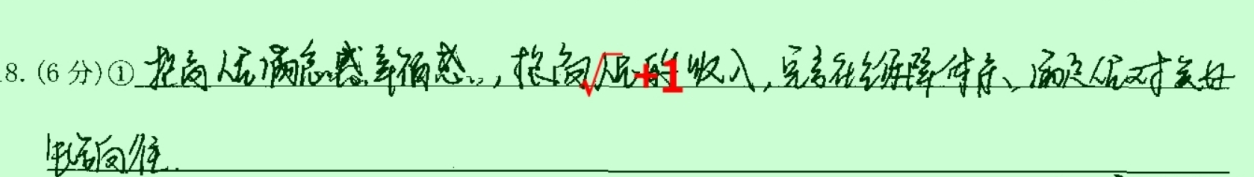 8. (6分)① 提高人民满意感幸福感,提高人民的收入,完善社会保障体系、满足人民对美好
生活向往.
√+1